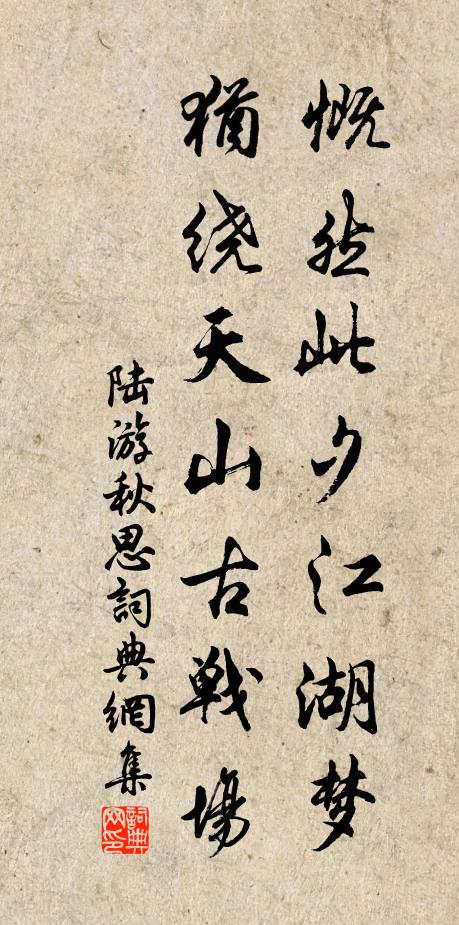 慨然此夕江湖梦
犹绕天山古戰場
陆游秋思詞典網集
詞典网印